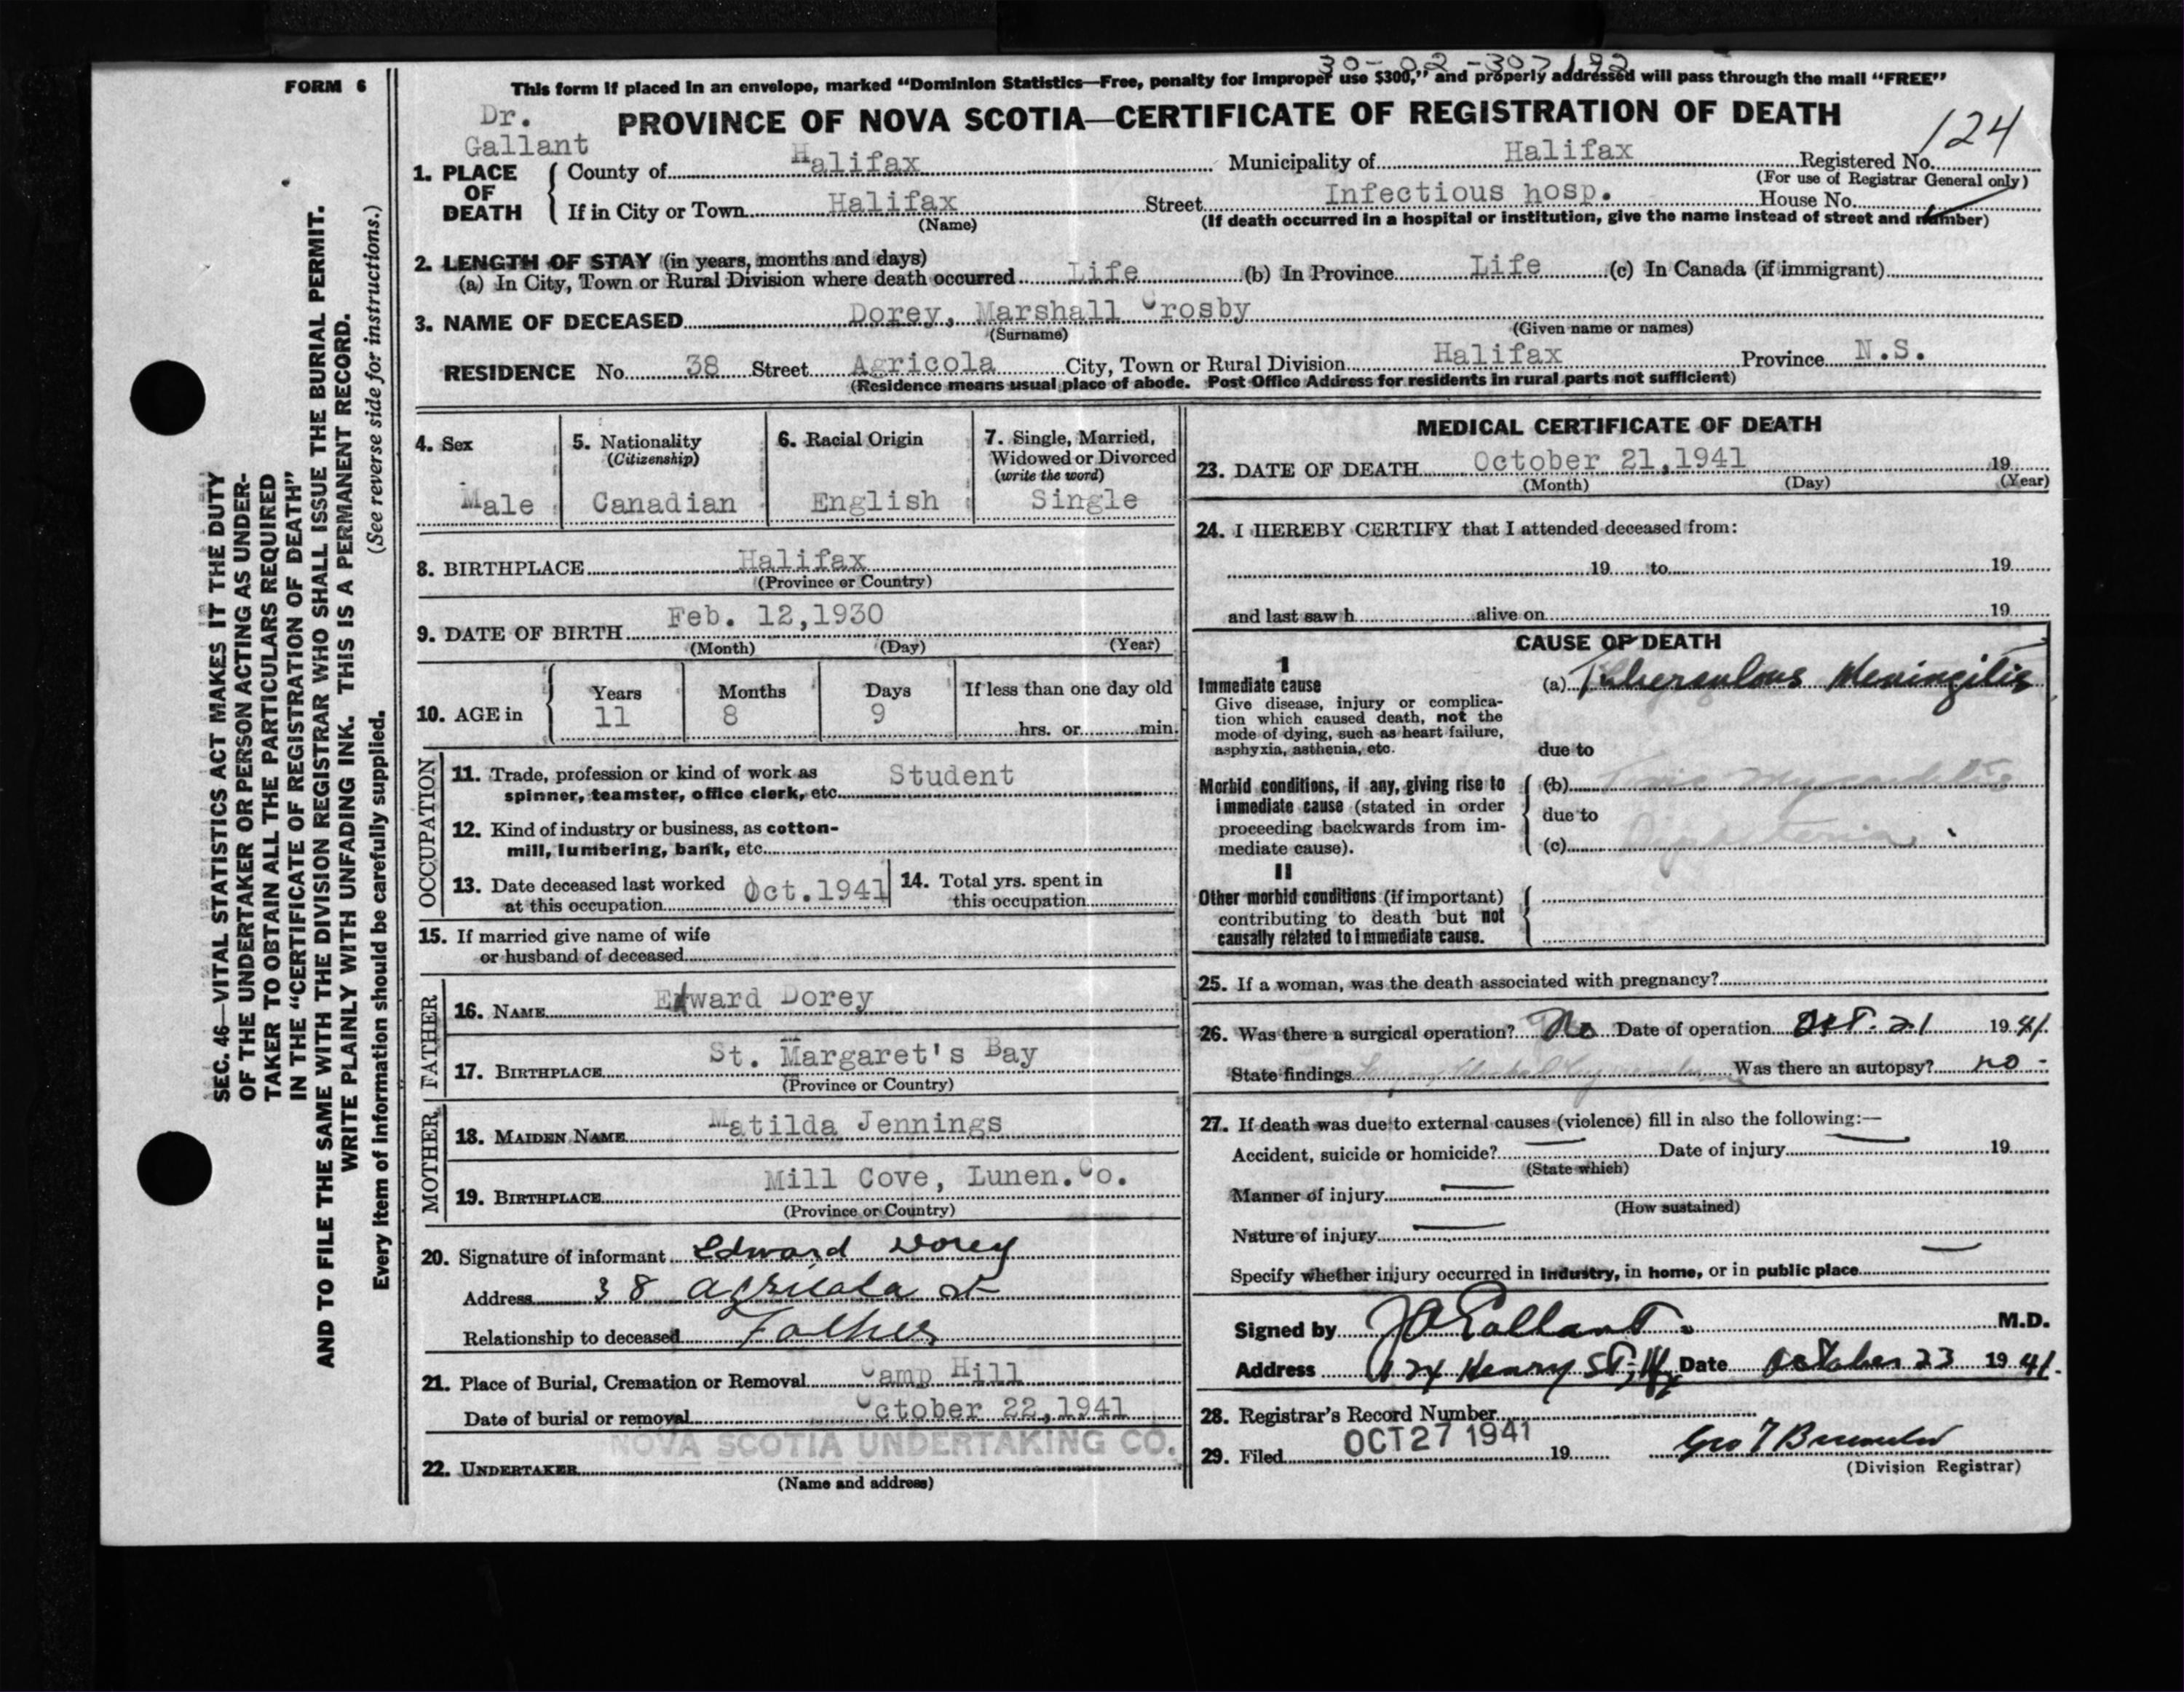 30-02-307192
FORM 6
This form if placed in an envelope, marked “Dominion Statistics—Free, penalty for improper use $300,” and properly addressed will pass through the mail “FREE”
Dr.
Gallant
PROVINCE OF NOVA SCOTIA—CERTIFICATE OF REGISTRATION OF DEATH
124
1. PLACE OF DEATH
County of Halifax Municipality of Halifax Registered No.
(For use of Registrar General only)
If in City or Town Halifax Street Infectious hosp. House No.
(Name) (If death occurred in a hospital or institution, give the name instead of street and number)
2. LENGTH OF STAY (in years, months and days)
(a) In City, Town or Rural Division where death occurred Life (b) In Province Life (c) In Canada (if immigrant)
3. NAME OF DECEASED Dorey, Marshall Crosby
(Surname) (Given name or names)
RESIDENCE No. 38 Street Agricola City, Town or Rural Division Halifax Province N.S.
(Residence means usual place of abode. Post Office Address for residents in rural parts not sufficient)
4. Sex
Male
5. Nationality
(Citizenship)
Canadian
6. Racial Origin
English
7. Single, Married,
Widowed or Divorced
(write the word)
Single
8. BIRTHPLACE Halifax
(Province or Country)
9. DATE OF BIRTH Feb. 12,1930
(Month) (Day) (Year)
10. AGE in
Years Months Days If less than one day old
11 8 9 hrs. or min.
OCCUPATION
11. Trade, profession or kind of work as Student
spinner, teamster, office clerk, etc.
12. Kind of industry or business, as cotton-
mill, lumbering, bank, etc.
13. Date deceased last worked Oct.1941
at this occupation
14. Total yrs. spent in
this occupation
15. If married give name of wife
or husband of deceased
FATHER
16. NAME Edward Dorey
17. BIRTHPLACE St. Margaret's Bay
(Province or Country)
MOTHER
18. MAIDEN NAME Matilda Jennings
19. BIRTHPLACE Mill Cove, Lunen.Co.
(Province or Country)
20. Signature of informant Edward Dorey
Address 38 Agricola St
Relationship to deceased Father
21. Place of Burial, Cremation or Removal Camp Hill
Date of burial or removal October 22,1941
NOVA SCOTIA UNDERTAKING CO.
22. UNDERTAKER
(Name and address)
MEDICAL CERTIFICATE OF DEATH
23. DATE OF DEATH October 21,1941 19
(Month) (Day) (Year)
24. I HEREBY CERTIFY that I attended deceased from:
19 to 19
and last saw h alive on 19
CAUSE OF DEATH
I
Immediate cause
Give disease, injury or complica-
tion which caused death, not the
mode of dying, such as heart failure,
asphyxia, asthenia, etc.
(a) Tuberculous Meningitis
due to
Morbid conditions, if any, giving rise to
immediate cause (stated in order
proceeding backwards from im-
mediate cause).
(b) Toxic Myocarditis
due to
(c) Diphtheria
II
Other morbid conditions (if important)
contributing to death but not
causally related to immediate cause.
25. If a woman, was the death associated with pregnancy?
26. Was there a surgical operation? No Date of operation Oct. 21 1941.
State findings Was there an autopsy? no -
27. If death was due to external causes (violence) fill in also the following:—
Accident, suicide or homicide? Date of injury 19
(State which)
Manner of injury
(How sustained)
Nature of injury
Specify whether injury occurred in industry, in home, or in public place
Signed by JAGallant. M.D.
Address 124 Henry St, Hfx Date October 23 1941.
28. Registrar's Record Number
29. Filed OCT 27 1941 19
(Division Registrar)
SEC. 46—VITAL STATISTICS ACT MAKES IT THE DUTY
OF THE UNDERTAKER OR PERSON ACTING AS UNDER-
TAKER TO OBTAIN ALL THE PARTICULARS REQUIRED
IN THE “CERTIFICATE OF REGISTRATION OF DEATH”
AND TO FILE THE SAME WITH THE DIVISION REGISTRAR WHO SHALL ISSUE THE BURIAL PERMIT.
WRITE PLAINLY WITH UNFADING INK. THIS IS A PERMANENT RECORD.
Every item of information should be carefully supplied. (See reverse side for instructions.)